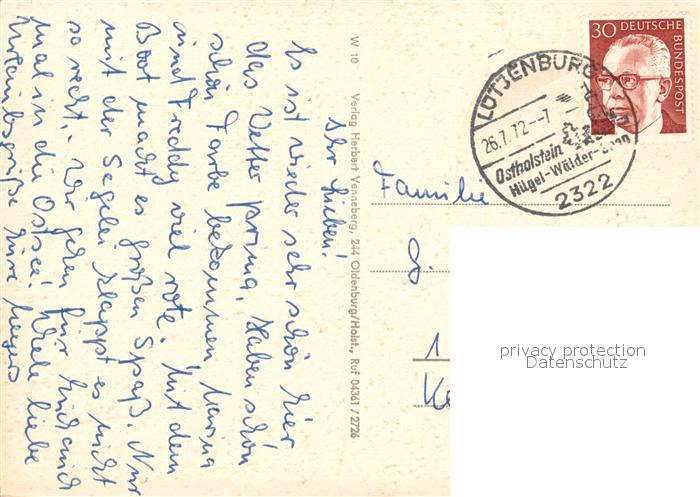 Ihr Lieben!
Es ist wieder sehr schön hier
das Wetter prima. Haben schön
schön Farbe bekommen, Marina
und Freddy viel rote. Mit dem
Boot macht es großen Spaß. Nur
mit der Segelei klappt es nicht
so recht. Wir gehen für Euch auch
mal in die Ostsee. Viele liebe
Urlaubsgrüße Eure
W 10 Verlag Herbert Venneberg, 244 Oldenburg/Holst., Ruf 04361 / 2726
30 DEUTSCHE BUNDESPOST
LÜTJENBURG
26.7.72--7
Ostholstein
Hügel-Wälder-
2322
Familie
1
privacy protection
Datenschutz